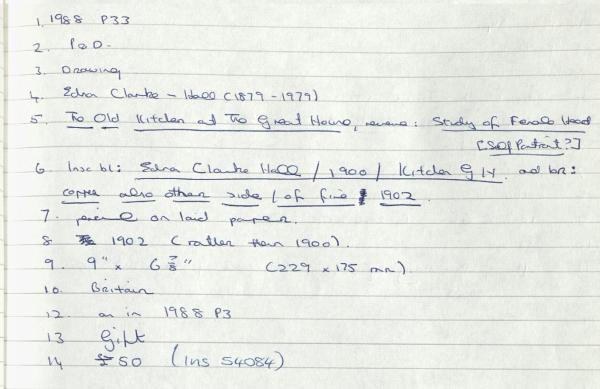 1. 1988 P33
2. P&D.
3. Drawing
4. Edna Clarke-Hall (1879-1979)
5. The Old Kitchen at The Great House, reverse: Study of Female Head
[Self Portrait?]
6. Insc bl: Edna Clarke Hall / 1900 / Kitchen G and br:
copper also other side / of fire 1902.
7. pencil on laid paper.
8 1902 (rather than 1900).
9. 9" x 6 7/8" (229 x 175 mm).
10. Britain
12. as in 1988 P3
13 Gift
14 £50 (Ins 54084)